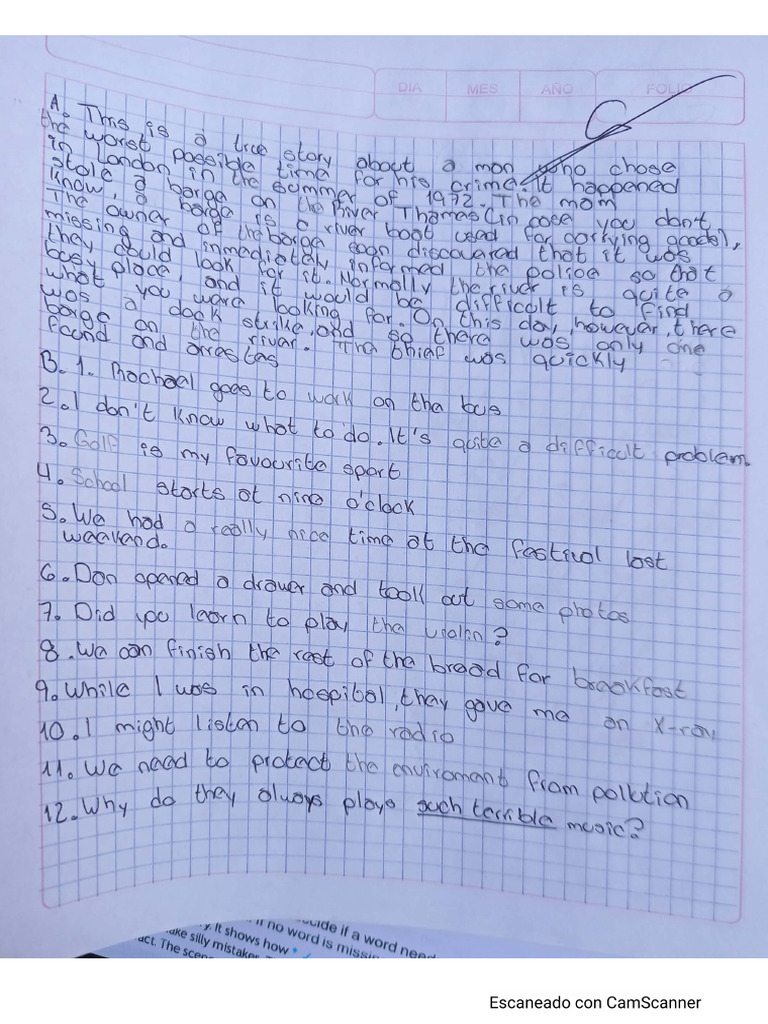 DIA MES AÑO FOLIO
A. This is a true story about a man who chose
the worst possible time for his crime. It happened
in London in the summer of 1972. The mom
stole a barge on the River Thames (in case you don't
know, a barge is a river boat used for carrying goods),
The owner of the barge soon discovered that it was
missing and inmediately informed the police so that
they could look for it. Normally the river is quite a
busy place, and it would be difficult to find
what you were looking for. On this day, however, there
was a dock strike, and so there was only one
barge on the river. The thief was quickly
found and arrestas
B. 1. Rachael goes to work on the bus
2. I don't know what to do. It's quite a difficult problem.
3. Golf is my favourite sport
4. School starts at nine o'clock
5. We had a really nice time at the festival last
weekend.
6. Dan opened a drawer and took out some photos
7. Did you learn to play the violin?
8. We can finish the rest of the bread for breakfast
9. While I was in hospital, they gave me an X-ray
10. I might listen to the radio
11. We need to protect the enviroment from pollution
12. Why do they always plays such terrible music?
cide if a word need
if no word is missin
y. It shows how
ake silly mistakes
act. The scen
Escaneado con CamScanner